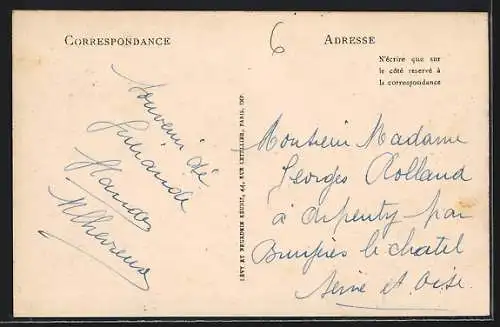 CORRESPONDANCE
ADRESSE
6
N'écrire que sur
le côté réservé à
la correspondance
Souvenir de
Guérande
LÉVY ET NEURDEIN RÉUNIS, 44, RUE LETELLIER, PARIS, IMP.
Monsieur Madame
Georges Rolland
à Arpenty par
Bruyères le chatel
Seine et Oise